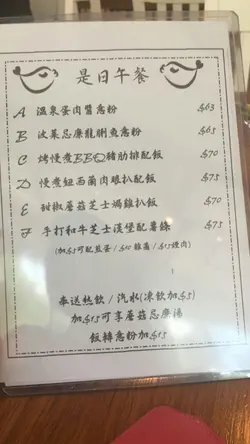 是日午餐
A 溫泉蛋肉醬意粉 $63
B 菠菜忌廉龍脷魚意粉 $65
C 烤慢煮BBQ豬肋排配飯 $70
D 慢煮紐西蘭肉眼扒配飯 $75
E 甜椒蘑菇芝士焗雞扒飯 $70
F 手打和牛芝士漢堡配薯條 $75
(加$5可配煎蛋/$10雞蘑/$15煙肉)
奉送熱飲/汽水(凍飲加$5)
加$15可享蘑菇忌廉湯
飯轉意粉加$15